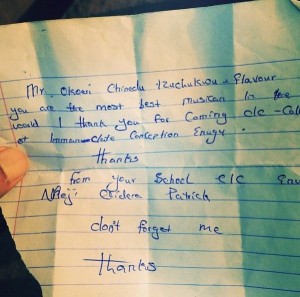 Mr. Okori Chinedu Izuchukwu - Flavour
you are the most best musican In the
would I thank you for Coming c/c - Coll
at Immaculate Conception Enugu.
Thanks
From your School C/C Enu
Chidera Patrick
don't forget me
Thanks